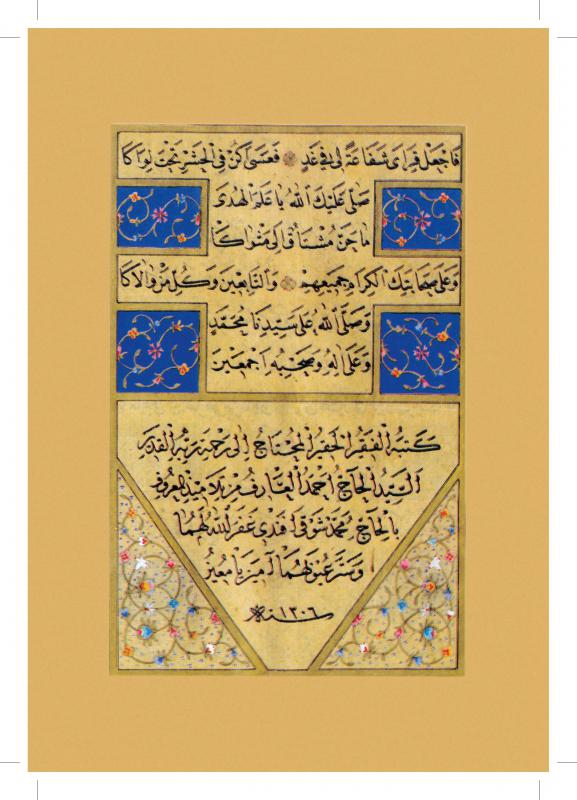 فَاجْعَلْ قِرَاىَ شَفَاعَةً لِى فِى غَدٍ ۞ فَعَسَى اَكُنْ فِى الْحَشْرِ تَحْتَ لِوَاكَا
صَلَّى عَلَيْكَ اللهُ يَا عَلَمَ الْهُدَى
مَا حَنَّ مُشْتَاقٌ اِلَى مَثْوَاكَا
وَعَلَى صَحَابَتِكَ الْكِرَامِ جَمِيعِهِمْ ۞ وَالتَّابِعِينَ وَكُلِّ مَنْ وَالَاكَا
وَصَلَّى اللهُ عَلَى سَيِّدِنَا مُحَمَّدٍ
وَعَلَى اٰلِهِ وَصَحْبِهِ اَجْمَعِينَ
كَتَبَهُ الْفَقِيرُ الْحَقِيرُ الْمُحْتَاجُ اِلَى رَحْمَةِ رَبِّهِ الْقَدِيرِ
اَلسَّيِّدُ الْحَاجُّ اَحْمَدُ الْعَارِفُ مِنْ تَلَامِيذِ الْمَعْرُوفِ
بِالْحَاجِّ مُحَمَّدْ شَوْقِى اَفَنْدِى غَفَرَ اللهُ لَهُمَا
وَسَتَرَ عُيُوبَهُمَا اٰمِينَ يَا مُعِينُ
سنة ١٣٠٦